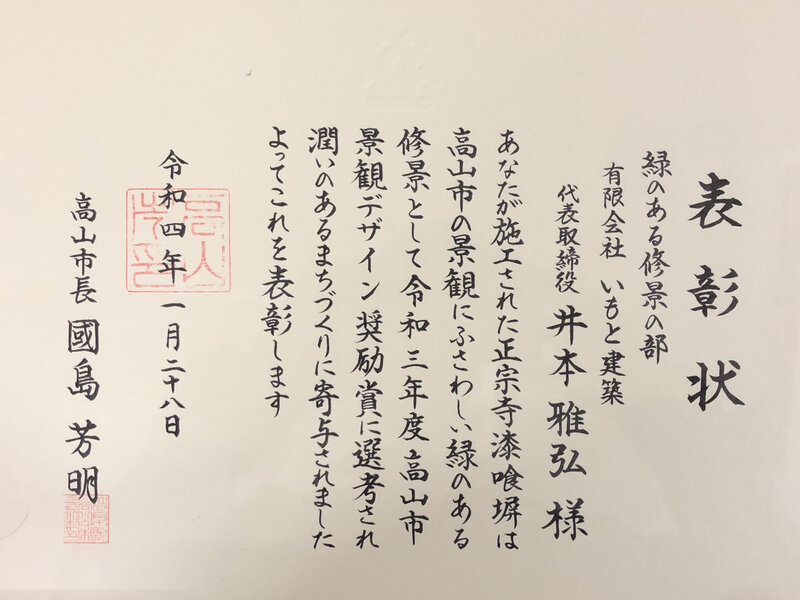 表彰状
緑のある修景の部
有限会社 いもと建築
代表取締役 井本 雅弘 様
あなたが施工された正宗寺漆喰塀は
高山市の景観にふさわしい緑のある
修景として令和三年度高山市
景観デザイン奨励賞に選考され
潤いのあるまちづくりに寄与されました
よってこれを表彰します
令和四年一月二十八日
高山市長 國島 芳明